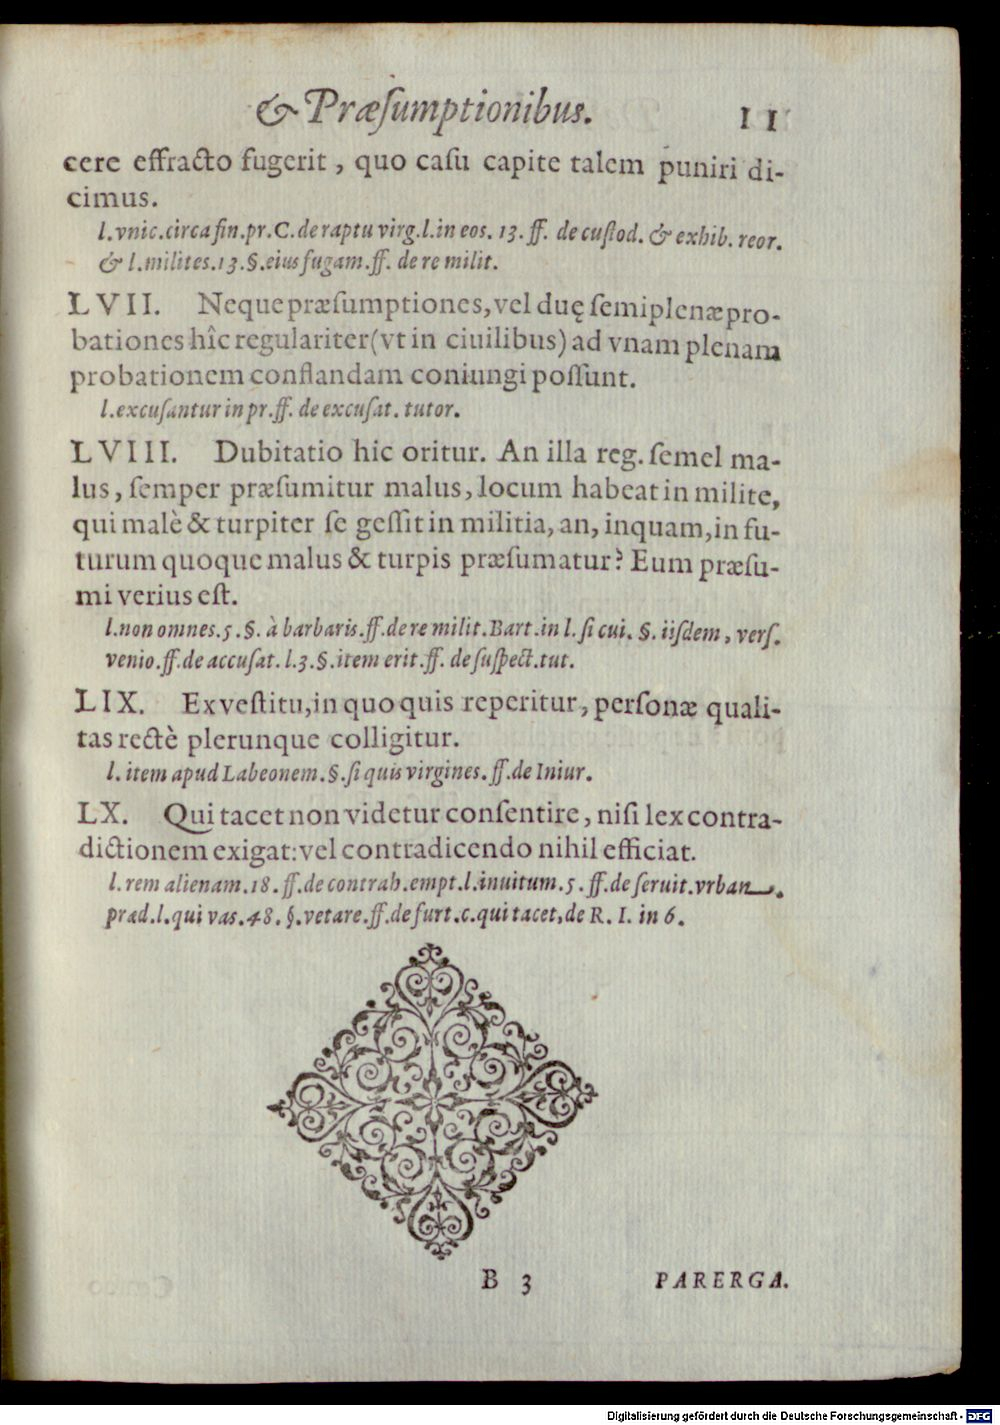 & Præſumptionibus. 11
cere effracto fugerit, quo caſu capite talem puniri di-
cimus.
l.vnic.circa fin.pr.C.de raptu virg.l.in eos. 13. ff. de cuſtod. & exhib. reor.
& l.milites.13.§.eius fugam.ff. de re milit.
LVII. Neque præſumptiones, vel duę ſemiplenæ pro-
bationes hîc regulariter (vt in ciuilibus) ad vnam plenam
probationem conflandam coniungi poſſunt.
l.excuſantur in pr.ff. de excuſat. tutor.
LVIII. Dubitatio hic oritur. An illa reg. ſemel ma-
lus, ſemper præſumitur malus, locum habeat in milite,
qui malè & turpiter ſe geſſit in militia, an, inquam, in fu-
turum quoque malus & turpis præſumatur? Eum præſu-
mi verius eſt.
l.non omnes.5.§. à barbaris.ff.de re milit.Bart.in l.ſi cui. §. iiſdem, verſ.
venio.ff.de accuſat. l.3.§.item erit.ff. de ſuſpect.tut.
LIX. Ex veſtitu, in quo quis reperitur, perſonæ quali-
tas rectè plerunque colligitur.
l. item apud Labeonem.§.ſi quis virgines.ff.de Iniur.
LX. Qui tacet non videtur conſentire, niſi lex contra-
dictionem exigat: vel contradicendo nihil efficiat.
l. rem alienam.18. ff.de contrah.empt.l.inuitum.5. ff.de ſeruit.vrban.
præd.l.qui vas.48.§.vetare.ff.de furt.c.qui tacet,de R. I. in 6.
B 3 PARERGA.
Digitalisierung gefördert durch die Deutsche Forschungsgemeinschaft - DFG